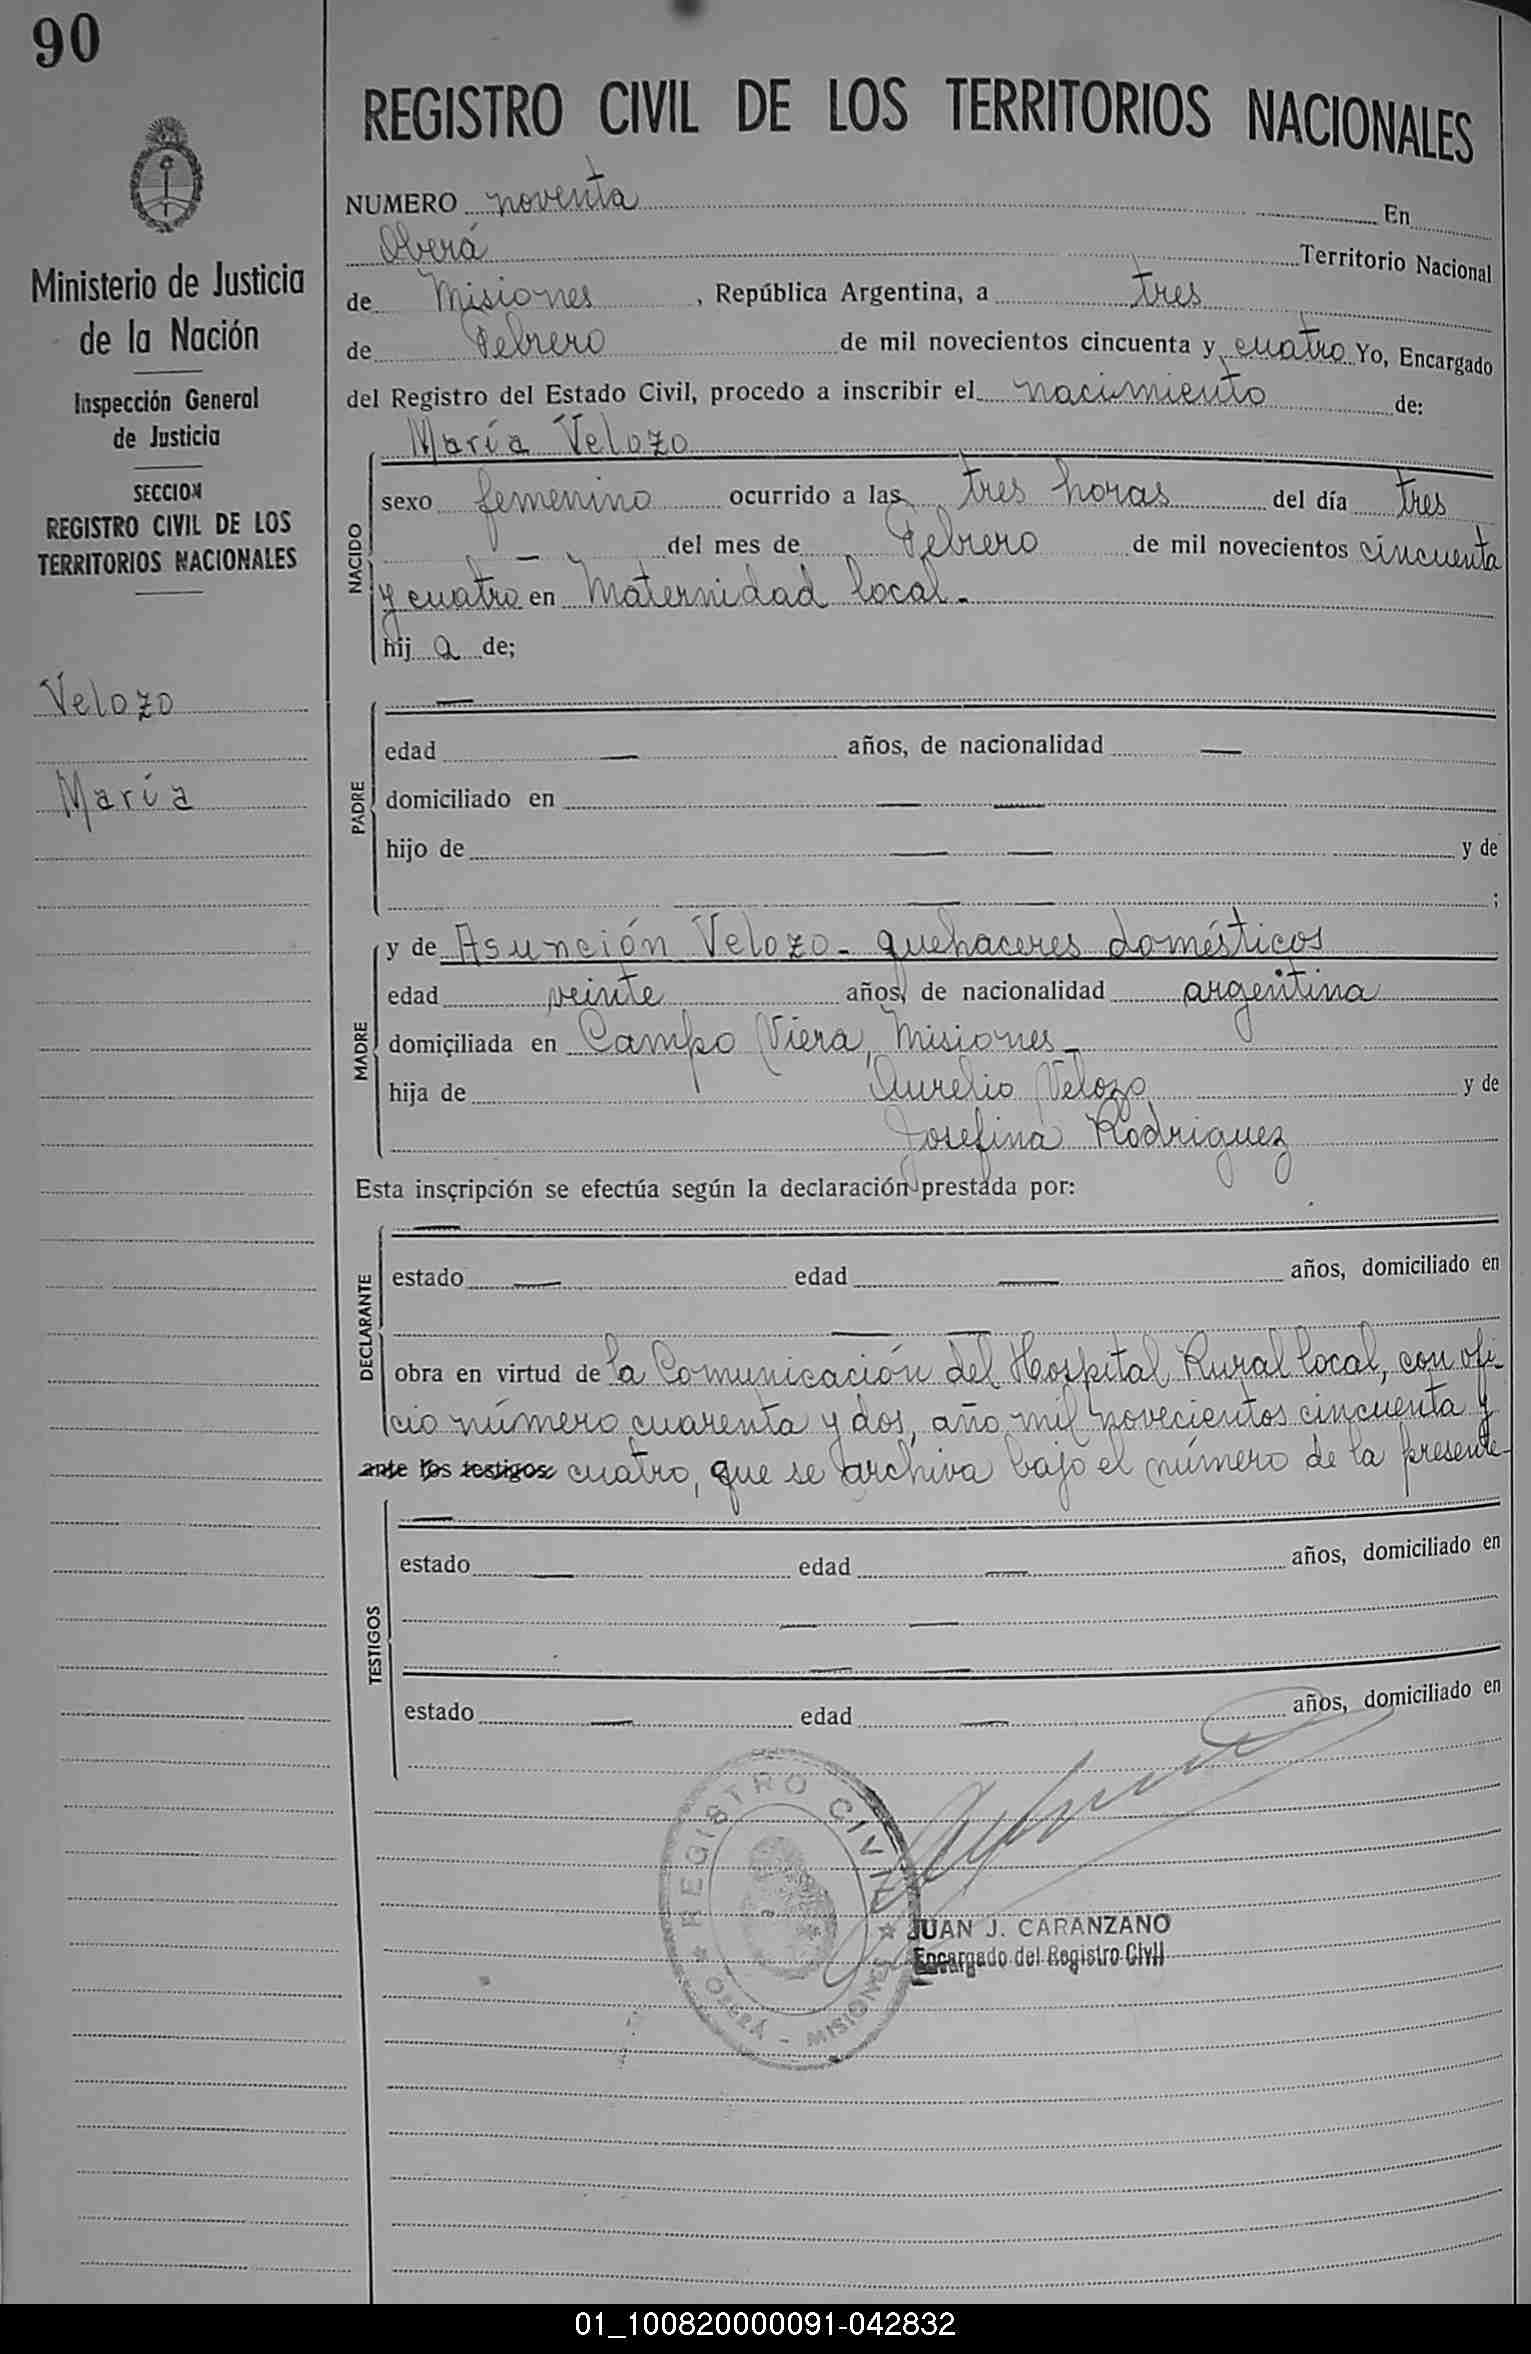 90
REGISTRO CIVIL DE LOS TERRITORIOS NACIONALES
Ministerio de Justicia
de la Nación
Inspección General
de Justicia
SECCION
REGISTRO CIVIL DE LOS
TERRITORIOS NACIONALES
Velozo
María
NUMERO noventa En
Oberá Territorio Nacional
de Misiones, República Argentina, a tres
de Febrero de mil novecientos cincuenta y cuatro Yo, Encargado
del Registro del Estado Civil, procedo a inscribir el nacimiento de:
NACIDO
María Velozo
sexo femenino ocurrido a las tres horas del día tres
— del mes de Febrero de mil novecientos cincuenta
y cuatro en Maternidad local.-
hij a de;
PADRE
—
edad — años, de nacionalidad —
domiciliado en — —
hijo de — — y de
— — ;
MADRE
y de Asunción Velozo- quehaceres domésticos
edad veinte años, de nacionalidad argentina
domiciliada en Campo Viera, Misiones-
hija de Aurelio Velozo y de
Josefina Rodriguez
Esta inscripción se efectúa según la declaración prestada por:
DECLARANTE
—
estado — edad — años, domiciliado en
— —
obra en virtud de la Comunicación del Hospital Rural local, con ofi-
cio número cuarenta y dos, año mil novecientos cincuenta y
ante los testigos: cuatro, que se archiva bajo el número de la presente-
TESTIGOS
—
estado — edad — años, domiciliado en
— —
— —
estado — edad — años, domiciliado en
REGISTRO CIVIL
OBERÁ - MISIONES
JUAN J. CARANZANO
Encargado del Registro Civil
01_100820000091-042832